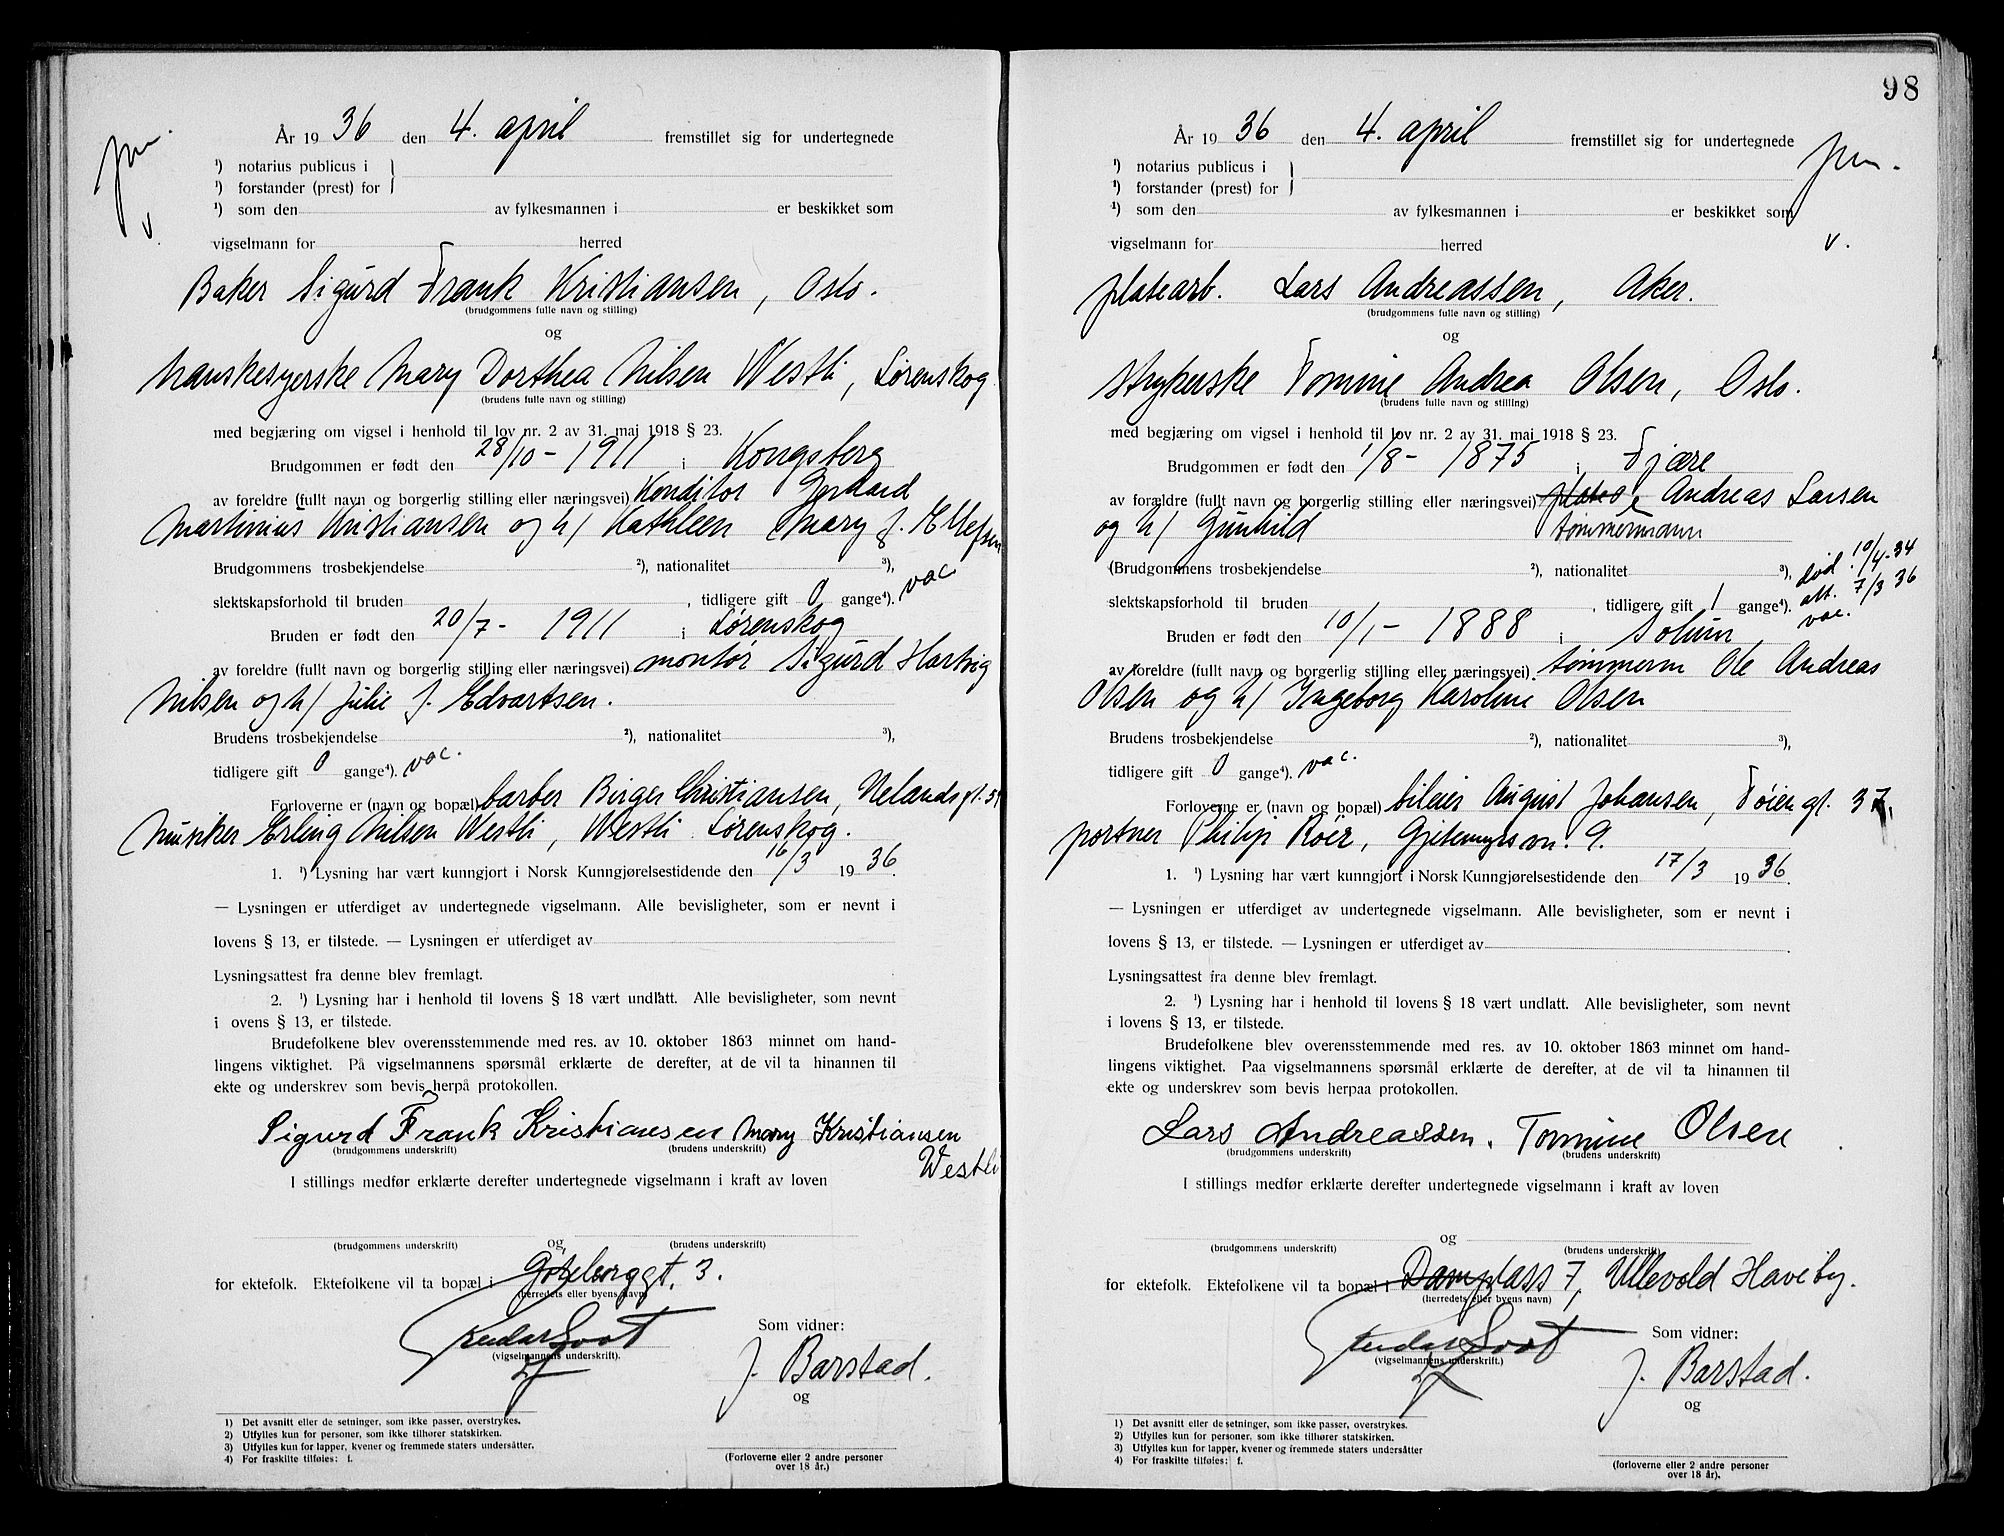 År 19 36 den 4. april fremstillet sig for undertegnede
¹) notarius publicus i
¹) forstander (prest) for
¹) som den av fylkesmannen i er beskikket som
v.
vigselmann for herred
Baker Sigurd Frank Kristiansen, Oslo.
(brudgommens fulle navn og stilling)
og
hanskesyerske Mary Dorthea Nilsen Westli, Lørenskog
(brudens fulle navn og stilling)
med begjæring om vigsel i henhold til lov nr. 2 av 31. mai 1918 § 23.
Brudgommen er født den 28/10 - 1911 i Kongsberg
av foreldre (fullt navn og borgerlig stilling eller næringsvei) Konditor Gerhard
Martinius Kristiansen og h/ Kathleen Mary f. Ellefsen
Brudgommens trosbekjendelse ²), nationalitet ³),
slektskapsforhold til bruden , tidligere gift 0 gange⁴). vac
Bruden er født den 20/7 - 1911 i Lørenskog
av foreldre (fullt navn og borgerlig stilling eller næringsvei) montør Sigurd Hartvig
Nilsen og h/ Julie f. Edvartsen.
Brudens trosbekjendelse ²), nationalitet ³),
tidligere gift 0 gange⁴). vac.
Forloverne er (navn og bopæl) barber Birger Christiansen, Nelands gt.
musiker Erling Nilsen Westli, Westli Lørenskog.
1. ¹) Lysning har vært kunngjort i Norsk Kunngjørelsestidende den 16/3 19 36.
— Lysningen er utferdiget av undertegnede vigselmann. Alle bevisligheter, som er nevnt i
lovens § 13, er tilstede. — Lysningen er utferdiget av
Lysningsattest fra denne blev fremlagt.
2. ¹) Lysning har i henhold til lovens § 18 vært undlatt. Alle bevisligheter, som nevnt
i ovens § 13, er tilstede.
Brudefolkene blev overensstemmende med res. av 10. oktober 1863 minnet om hand-
lingens viktighet. På vigselmannens spørsmål erklærte de derefter, at de vil ta hinannen til
ekte og underskrev som bevis herpå protokollen.
Sigurd Frank Kristiansen Mary Kristiansen
(brudgommens underskrift) (brudens underskrift)
Westli
I stillings medfør erklærte derefter undertegnede vigselmann i kraft av loven
og
(brudgommens underskrift) (brudens underskrift)
for ektefolk. Ektefolkene vil ta bopæl i Gøteborggt. 3.
(herredets eller byens navn)
Som vidner:
(vigselmannens underskrift).
J. Barstad.
og
1) Det avsnitt eller de setninger, som ikke passer, overstrykes.
2) Utfylles kun for personer, som ikke tilhører statskirken.
3) Utfylles kun for lapper, kvener og fremmede staters undersåtter.
4) For fraskilte tilføies: f.
(Forloverne eller 2 andre personer
over 18 år.)
98
År 19 36 den 4. april fremstillet sig for undertegnede
¹) notarius publicus i
¹) forstander (prest) for
¹) som den av fylkesmannen i er beskikket som
v.
vigselmann for herred
platearb. Lars Andreassen, Aker.
(brudgommens fulle navn og stilling)
og
strykerske Tomine Andrea Olsen, Oslo.
(brudens fulle navn og stilling)
med begjæring om vigsel i henhold til lov nr. 2 av 31. mai 1918 § 23.
Brudgommen er født den 1/8 - 1875 i Fjære
av forældre (fullt navn og borgerlig stilling eller næringsvei) Andreas Larsen
og h/ Gunhild tømmermann
(Brudgommens trosbekjendelse ²), nationalitet ³), død 10/4-34
slektskapsforhold til bruden , tidligere gift 1 gange⁴). att. 7/3 36
vac.
Bruden er født den 10/1 - 1888 i Solum,
av foreldre (fullt navn og borgerlig stilling eller næringsvei). tømmerm Ole Andreas
Olsen og h/ Ingeborg Karoline Olsen
Brudens trosbekjendelse ²), nationalitet ³),
tidligere gift 0 gange⁴). vac.
Forloverne er (navn og bopæl) bileier August Johansen, Tøien gt. 37,
portner Philip Röer, Gjetemyrsvn. 9.
1. ¹) Lysning har vært kunngjort i Norsk Kunngjørelsestidende den 17/3 19 36.
— Lysningen er utferdiget av undertegnede vigselmann. Alle bevisligheter, som er nevnt i
lovens § 13, er tilstede. — Lysningen er utferdiget av
Lysningsattest fra denne blev fremlagt.
2. ¹) Lysning har i henhold til lovens § 18 vært undlatt. Alle bevisligheter, som nevnt
i lovens § 13, er tilstede.
Brudefolkene blev overensstemmende med res. av 10. oktober 1863 minnet om hand-
lingens viktighet. Paa vigselmannens spørsmål erklærte de derefter, at de vil ta hinannen til
ekte og underskrev som bevis herpaa protokollen.
Lars Andreassen. Tomine Olsen
(brudgommens underskrift) (brudens underskrift)
I stillings medfør erklærte derefter undertegnede vigselmann i kraft av loven
og
(brudgommens underskrift) (brudens underskrift)
for ektefolk. Ektefolkene vil ta bopæl i Damplass 7, Ullevold Haveby.
(herredets eller byens navn)
Som vidner:
(vigselmannens underskrift.)
J. Barstad.
og
1) Det avsnitt eller de setninger, som ikke passer, overstrykes.
2) Utfylles kun for personer, som ikke tilhører statskirken.
3) Utfylles kun for lapper, kvener og fremmede staters undersåtter
4) For fraskilte tilføies: f.
(forloverne eller 2 andre personer
over 18 år).